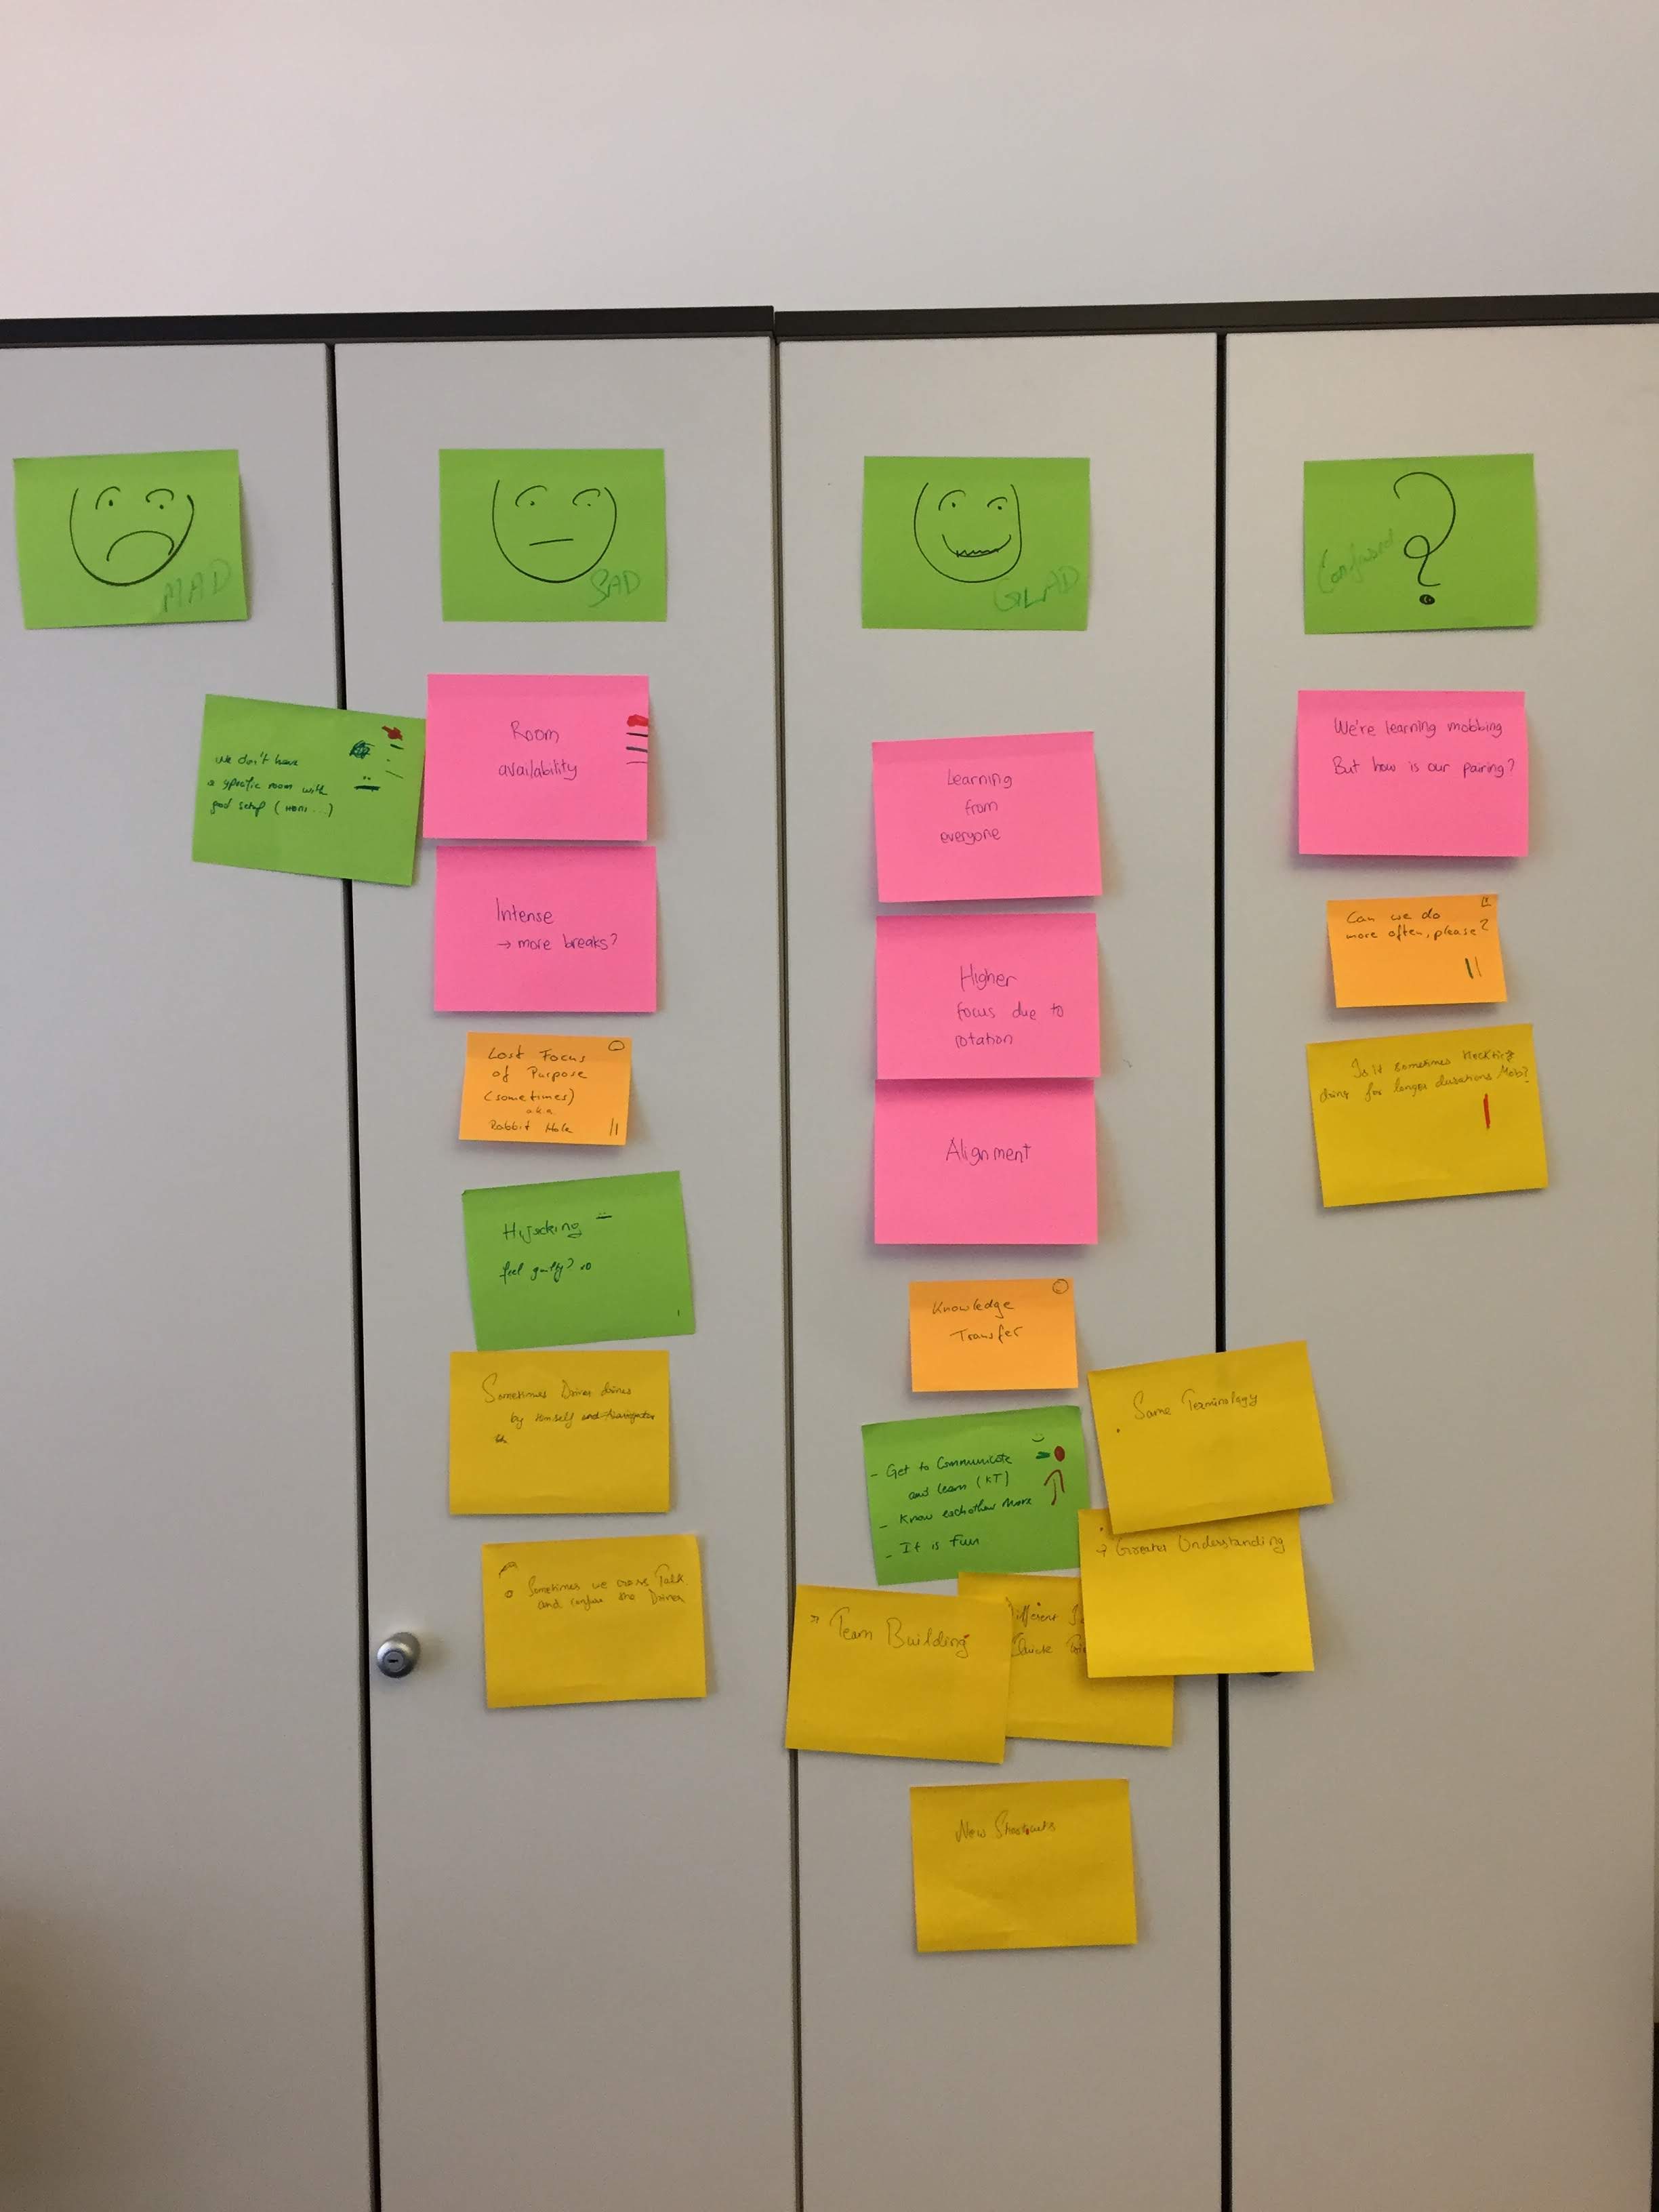 MAD
SAD
GLAD
Confused
?
we don't have
a specific room with
good setup (
Room
availability
Intense
→ more breaks?
Lost Focus
of Purpose
(sometimes)
aka
Rabbit Hole
Hijacking
feel guilty?
Sometimes Driver drives
by himself and navigator
Sometimes we cross Talk
and confuse the Driver
Learning
from
everyone
Higher
focus due to
rotation
Alignment
Knowledge
Transfer
- Get to Communicate
and learn (KT)
- Know each other more
- It is Fun
Same Terminology
→ Greater Understanding
Team Building
Different
New Shortcuts
We're learning mobbing
But how is our pairing?
Can we do
more often, please?
Is it sometimes
for longer durations Mob?